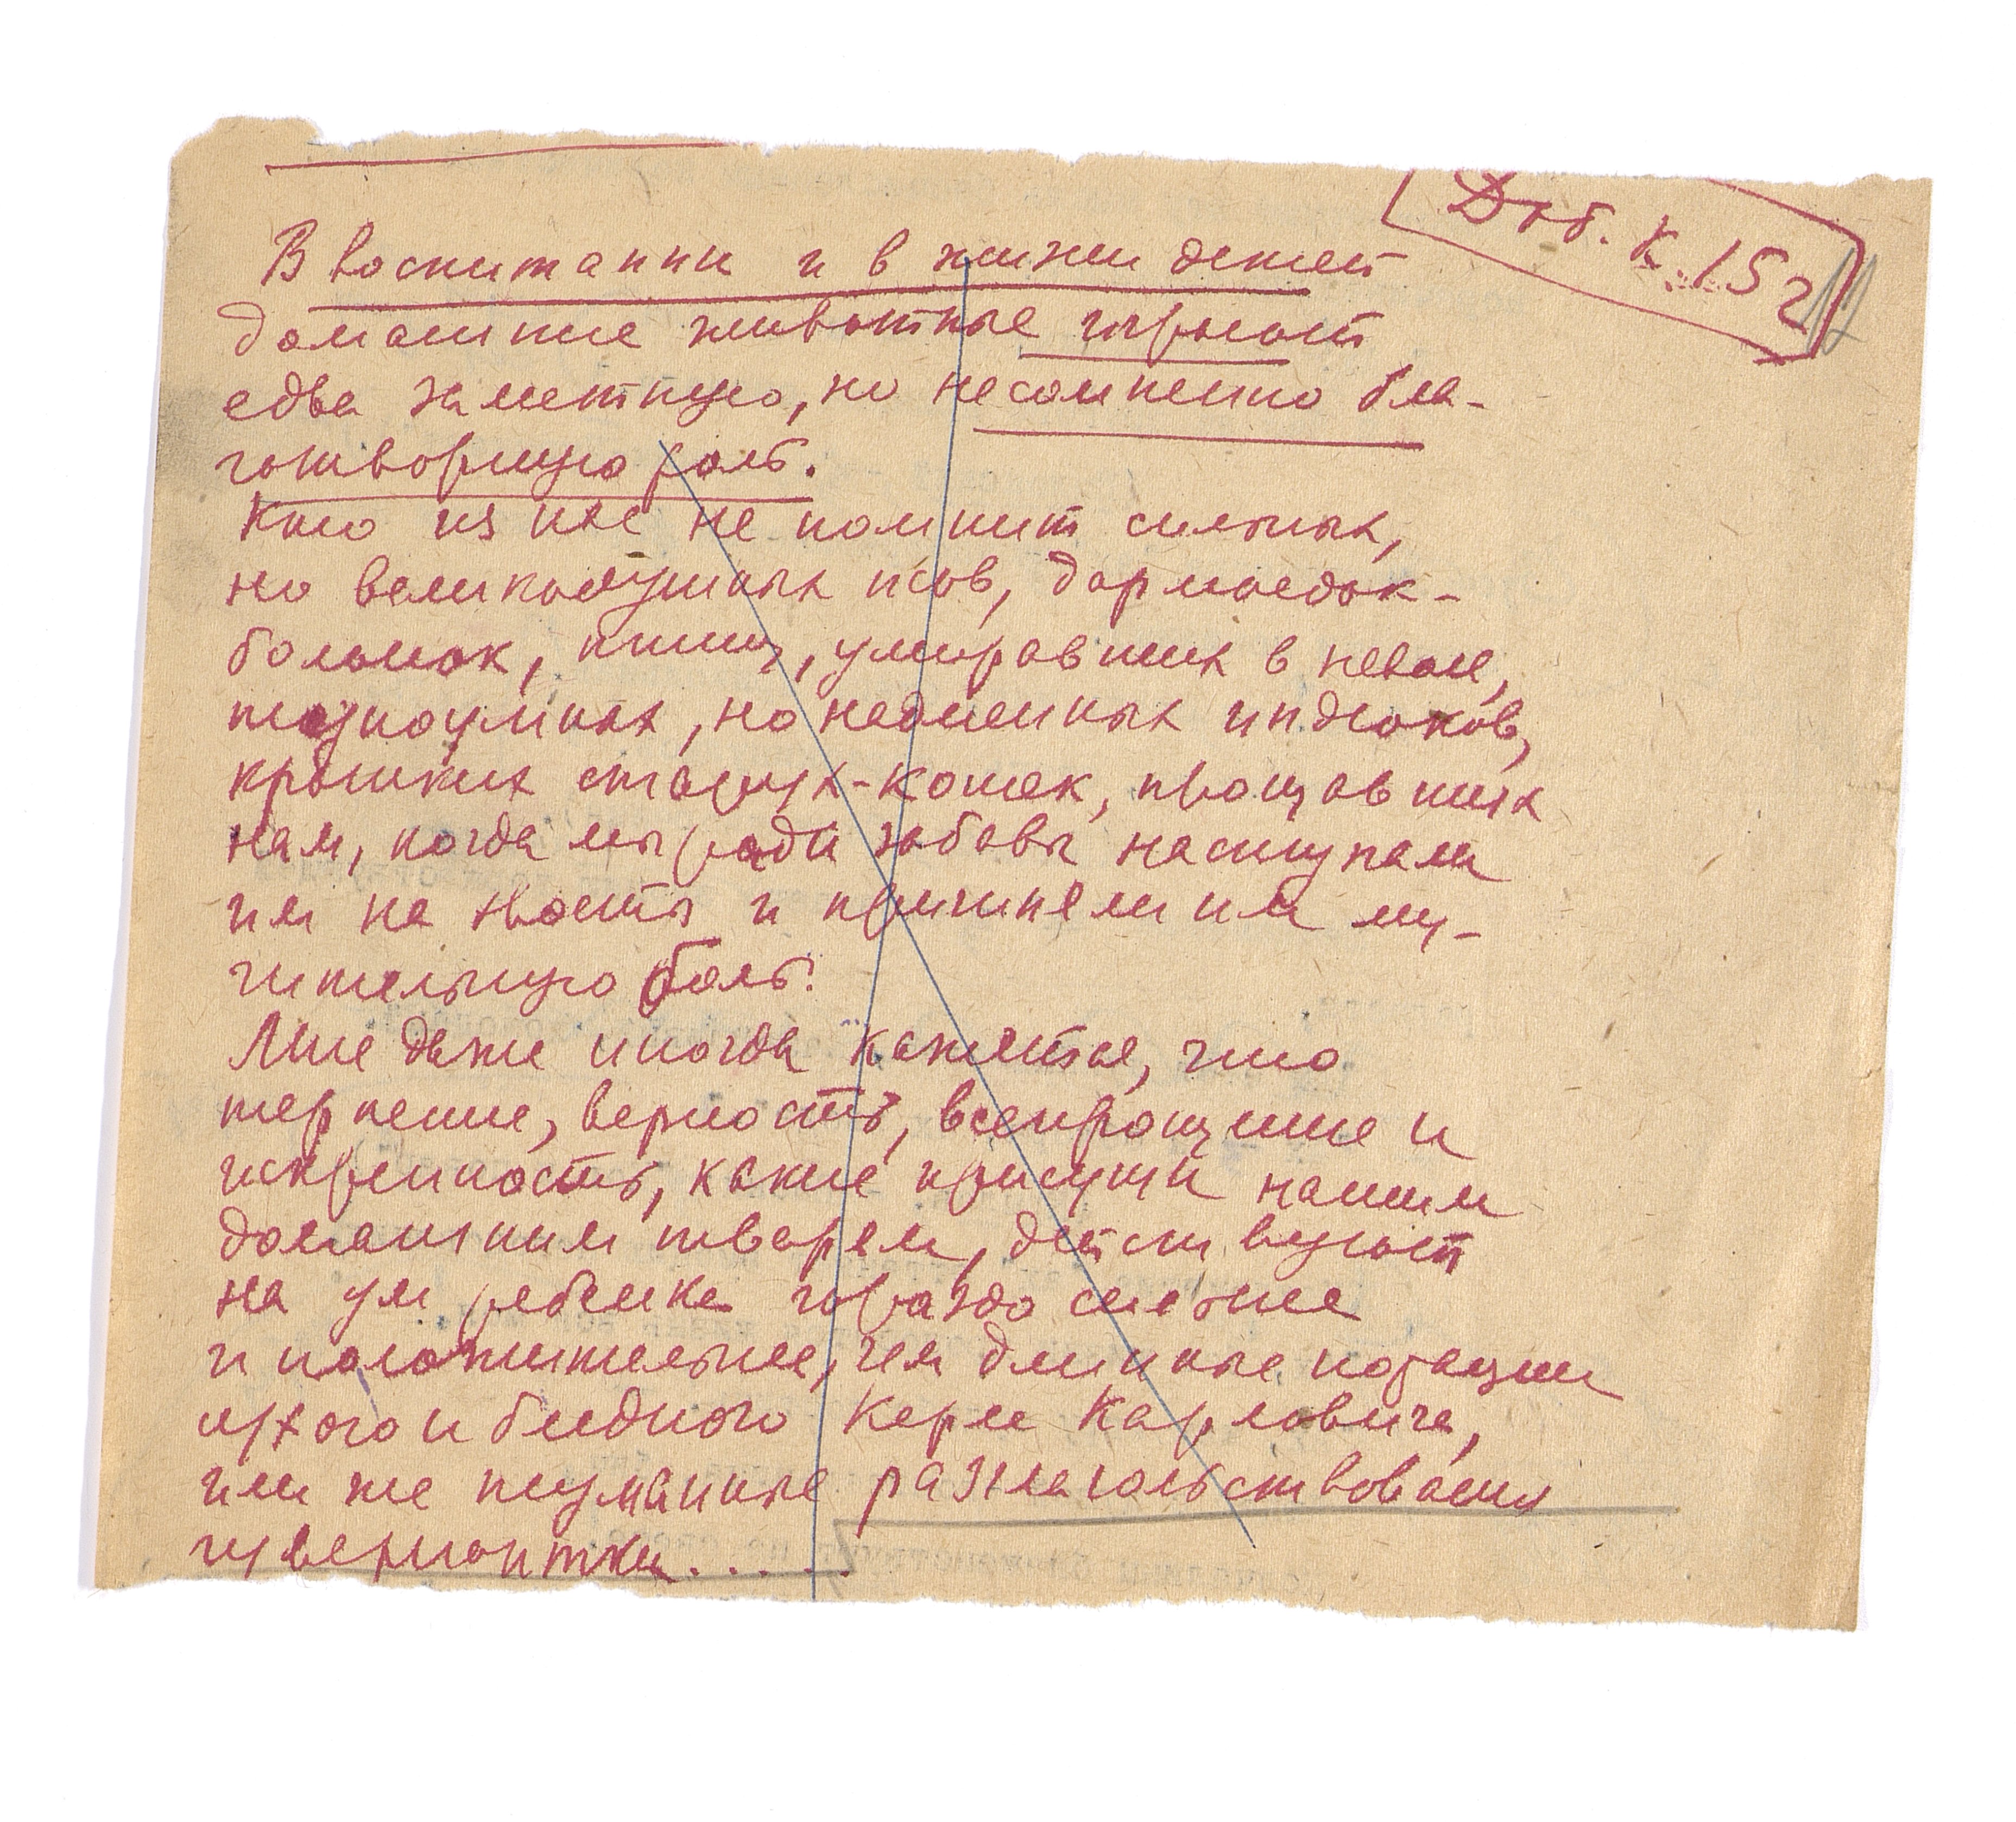 Доб. к. 152
В воспитании и в жизни детей
домашние животные играют
едва заметную, но несомненно бла-
готворную роль.
Кто из нас не помнит сильных,
но великодушных псов, дармоедок-
болонок, птиц, умиравших в неволе,
тупоумных, но надменных индюков,
кротких старух-кошек, прощавших
нам, когда мы ради забавы наступали
им на хвосты и причиняли им му-
чительную боль?
Мне даже иногда кажется, что
терпение, верность, всепрощение и
искренность, какие присущи нашим
домашним тварям, действуют
на ум ребенка гораздо сильнее
и положительнее, чем длинные нотации
сухого и бледного Карла Карловича,
или же туманные разглагольствования
гувернантки.....